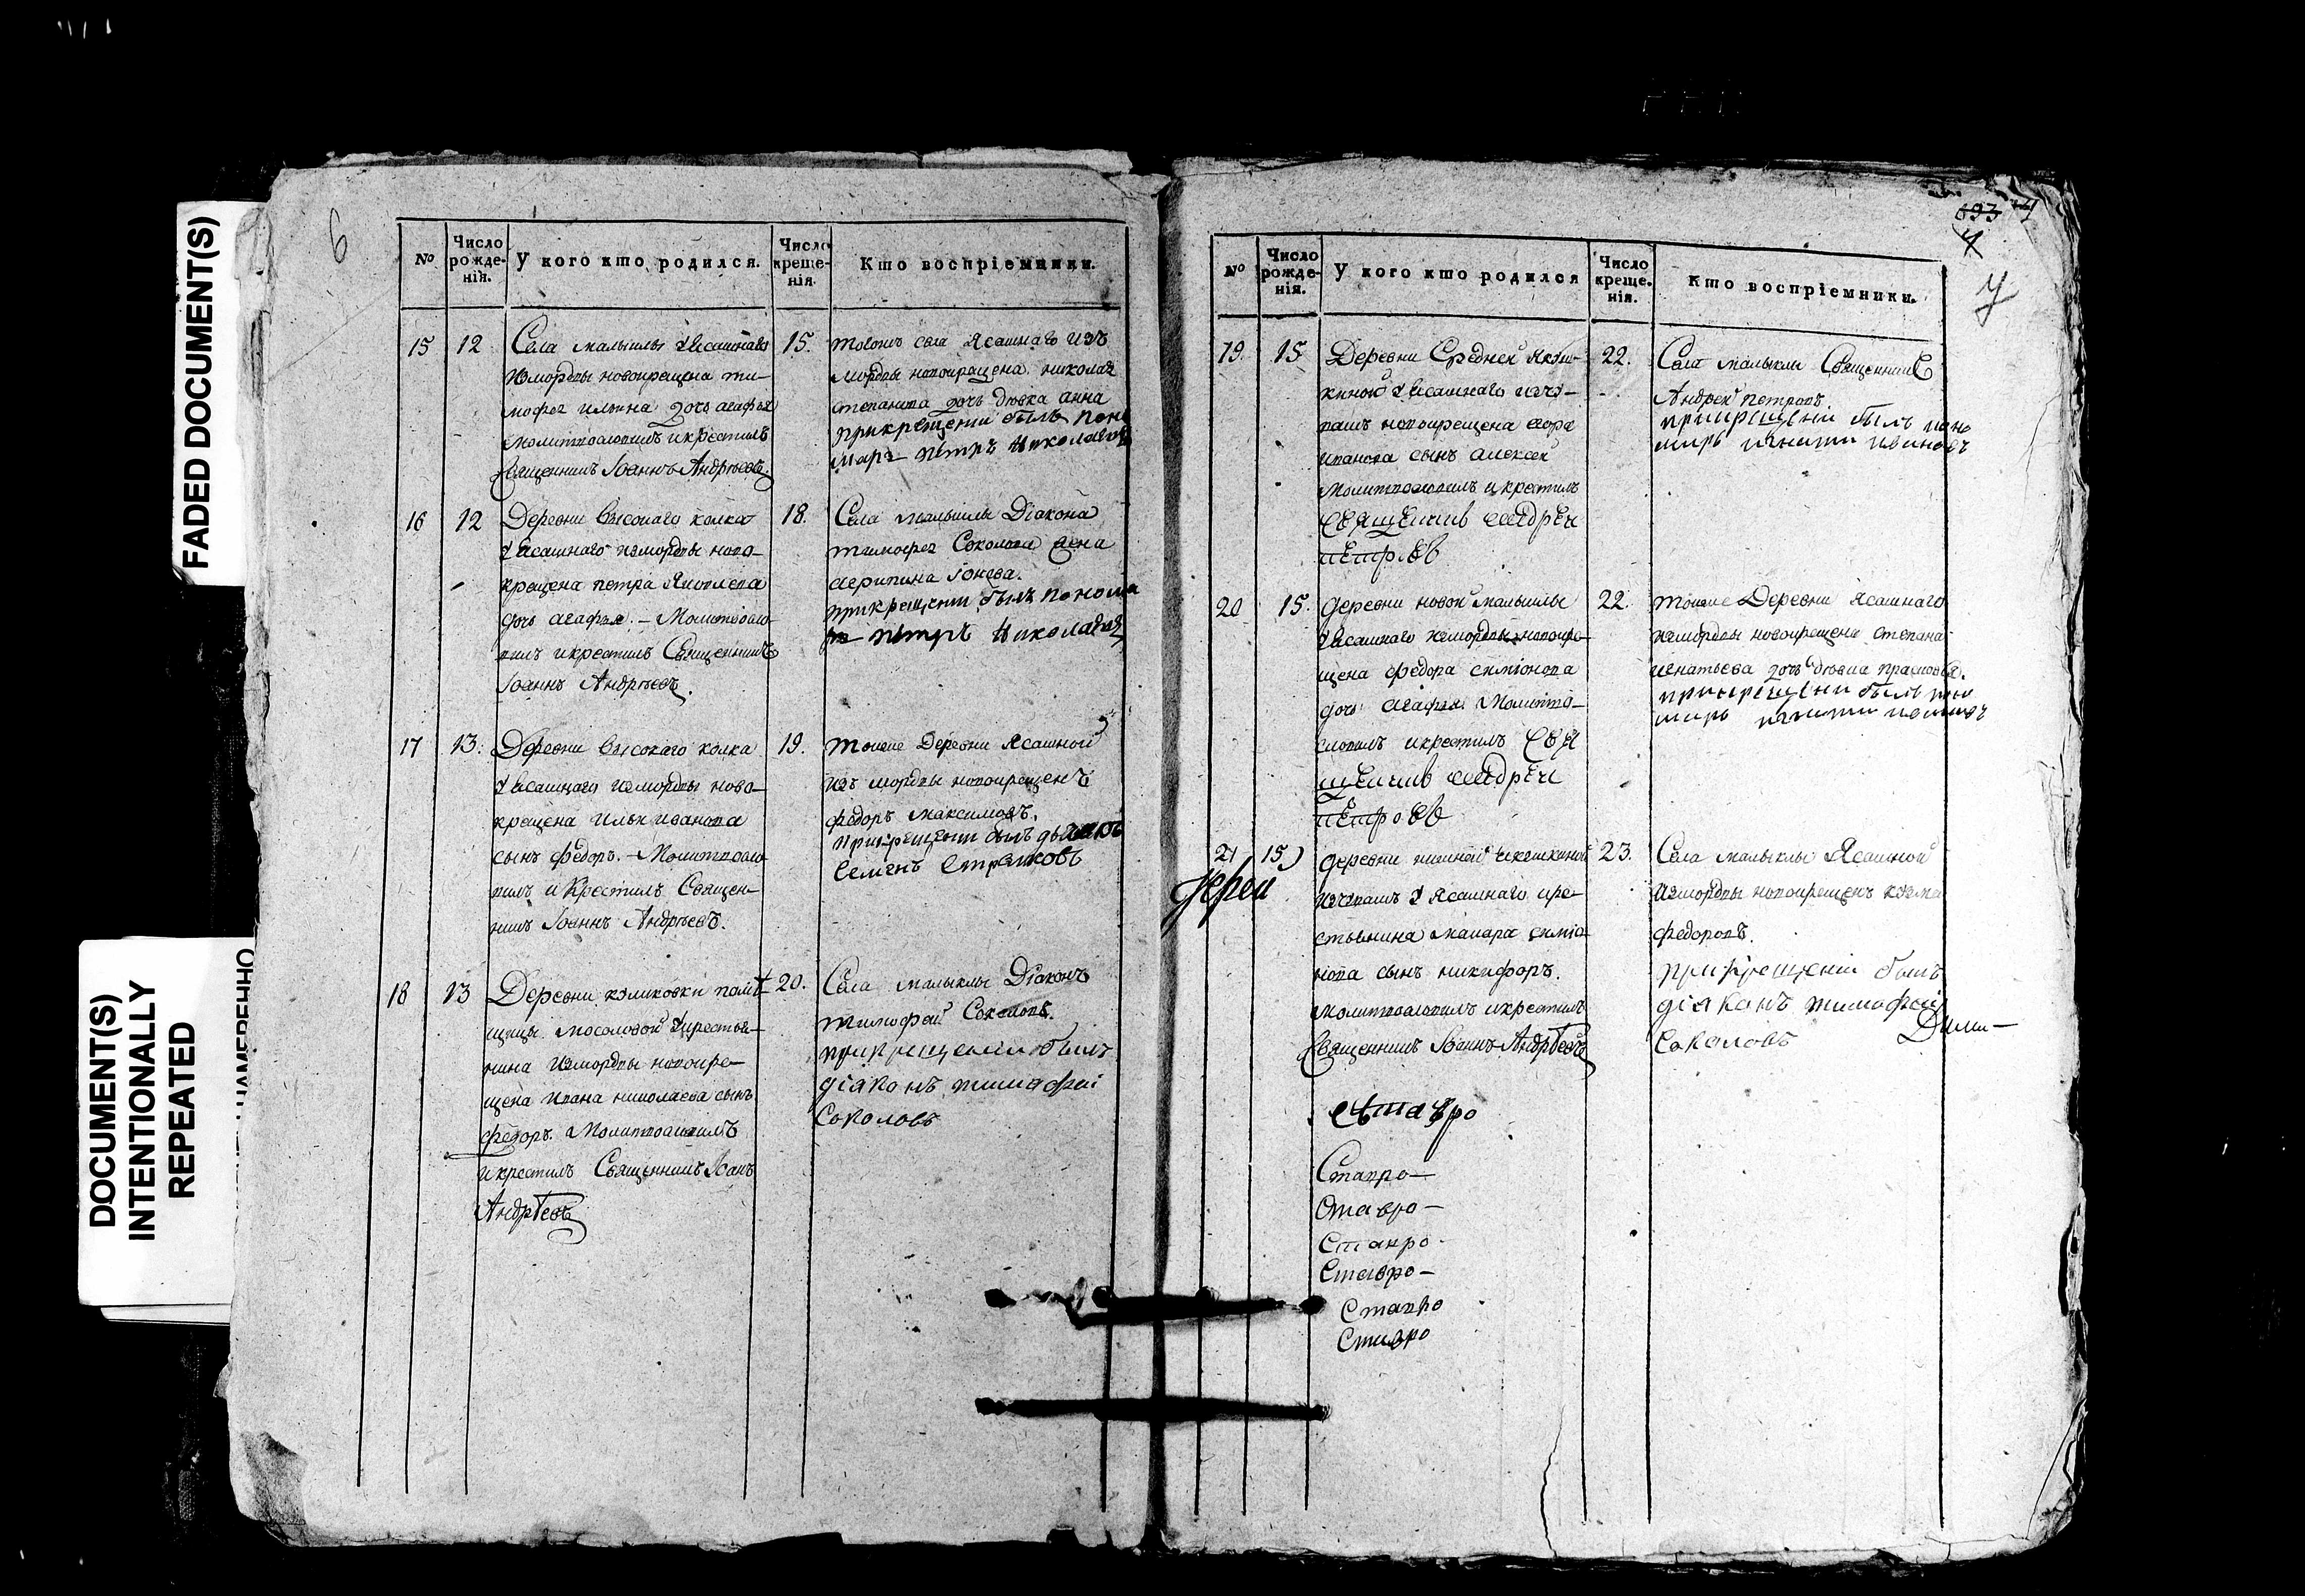 FADED DOCUMENT(S)
DOCUMENT(S)
INTENTIONALLY
REPEATED
6
№
Число рожде-нія.
У кого кто родился.
Число креще-нія
Кто воспріемники.
15
12
Села малыклы ясашнаго
измордвы новокрещена ти-
мофея ильина дочь агафья
молитвословилъ икрестилъ
Священникъ Іоаннъ Андрѣевъ.
15.
тогожъ села Ясашнаго изъ
мордвы новокрещена николая
степанова дочь дѣвка анна
прикрещени былъ поно
марь петръ николаевъ
16
12
Деревни высокаго колка
ясашнаго измордвы ново-
крещена петра Яковлева
дочь агафья. – Молитвосло
вилъ икрестилъ Священникъ
Іоаннъ Андрѣевъ.
18.
Села малыклы Діакона
тимофея Соколова жена
агрипина Іонева.
прикрещени былъ понома
петръ николаевъ
17
13.
Деревни высокаго колка
ясашнаго измордвы ново-
крещена ильи иванова
сынъ федоръ. – Молитвосло
вилъ и Крестилъ Священ-
никъ Іоаннъ Андрѣевъ.
19.
тойже Деревни Ясашной
изъ мордвы новокрещенъ
федоръ максимовъ.
прикрещени былъ
семенъ
18
13
Деревни куликовки помѣ-
щицы мосоловой крестья-
нина измордвы новокре-
щена ивана николаева сынъ
федоръ. Молитвословилъ
икрестилъ Священникъ Іоанъ
Андрѣевъ
20.
Села малыклы Діаконъ
тимофей Соколовъ.
прикрещеніи былъ
діяконъ тимофей
Соколовъ
693
7
№
Число рожде-нія.
У кого кто родился
Число креще-нія.
Кто воспріемники.
19.
15
Деревни Средней якуш-
киной ясашнаго изчу-
вашъ новокрещена
иванова сынъ алексей
молитвословилъ икрестилъ
священникъ андрей
петровъ
22.
Села малыклы Священникъ
Андрей петровъ
прикрещеніи былъ поно
марь игнати ивановъ
20
15.
деревни новой малыклы
ясашнаго измордвы новокре
щена федора симіонова
дочь агафья. Молитво-
словилъ икрестилъ свя
щенникъ андрей
петровъ
22.
тойже Деревни ясашнаго
измордвы новокрещена степана
игнатьева дочь дѣвка прасковья.
прикрещени былъ поно
марь игнати ивановъ
21
15
Іерей
деревни нижней якушкиной
изчувашъ ясашнаго кре-
стьянина макара симіо
нова сынъ никифоръ.
молитвословилъ икрестилъ
Священникъ Іоаннъ Андрѣевъ
23.
Села малыклы Ясашной
измордвы новокрещенъ козма
федоровъ.
прикрещеніи былъ
діяконъ тимофей
Соколовъ
Дими–
ставро
Ставро–
Ставро–
Ставро-
Ставро–
Ставро
Ставро